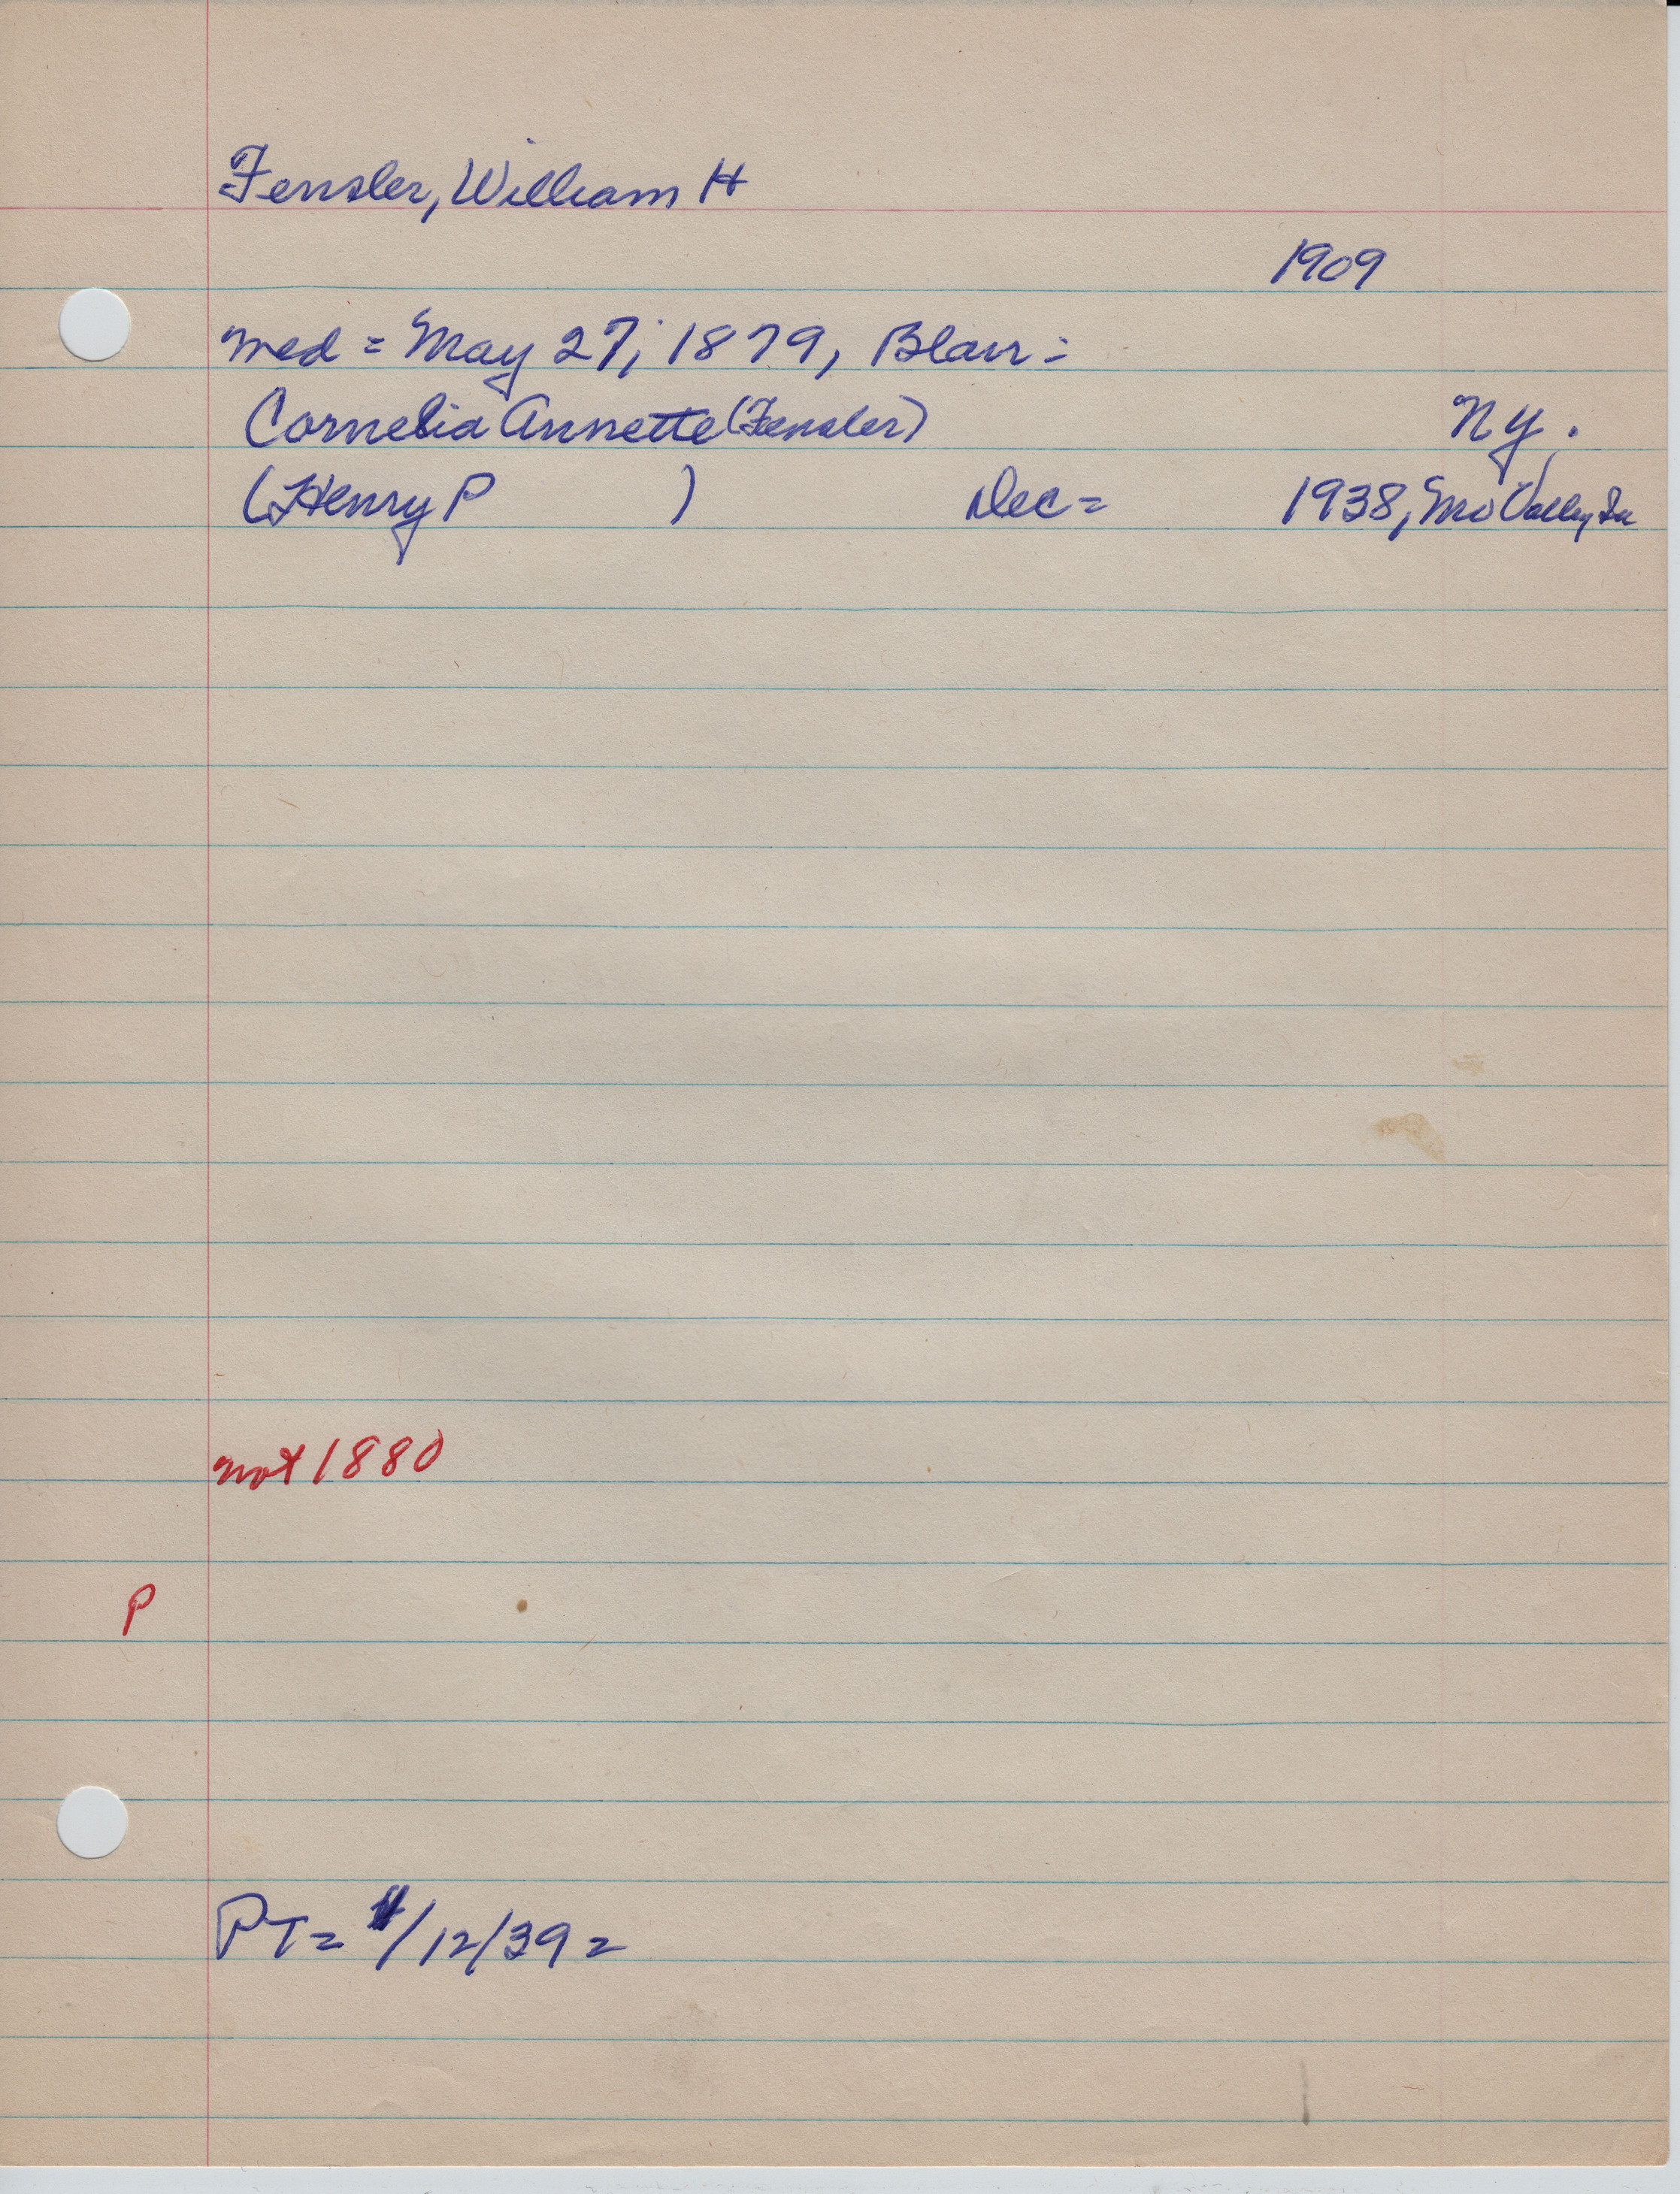 Fensler, William H
1909
med = May 27, 1879, Blair =
Cornelia Annette (Fensler) NY.
(Henry P ) Dec = 1938, Mo Valley, Ia
not 1880
P
PT = /12/39 =